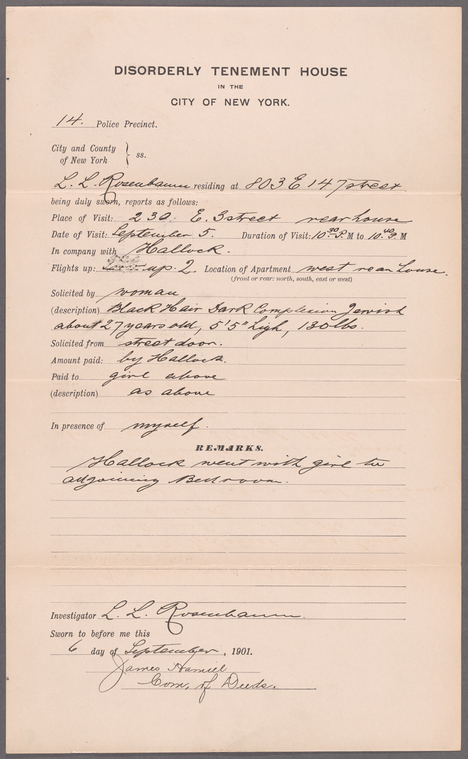 DISORDERLY TENEMENT HOUSE
IN THE
CITY OF NEW YORK.
14. Police Precinct.
City and County
of New York } ss.
L. L. Rosenbaum residing at 803 E 147 street
being duly sworn, reports as follows:
Place of Visit: 230 E. 3 street rear house
Date of Visit: September 5. Duration of Visit: 10 30 P. M to 10 40 P. M
In company with Hallock.
Flights up: up 2 Location of Apartment west rear house.
(front or rear: north, south, east or west)
Solicited by woman
(description) Black Hair Dark Complexion Jewish
about 27 years old, 5'5" high, 130 lbs.
Solicited from street door.
Amount paid: by Hallock.
Paid to girl above
(description) as above
In presence of myself.
REMARKS.
Hallock went with girl to
adjoining Bedroom.
Investigator L. L. Rosenbaum.
Sworn to before me this
6 day of September, 1901.
James Hamill
Com. of Deeds.